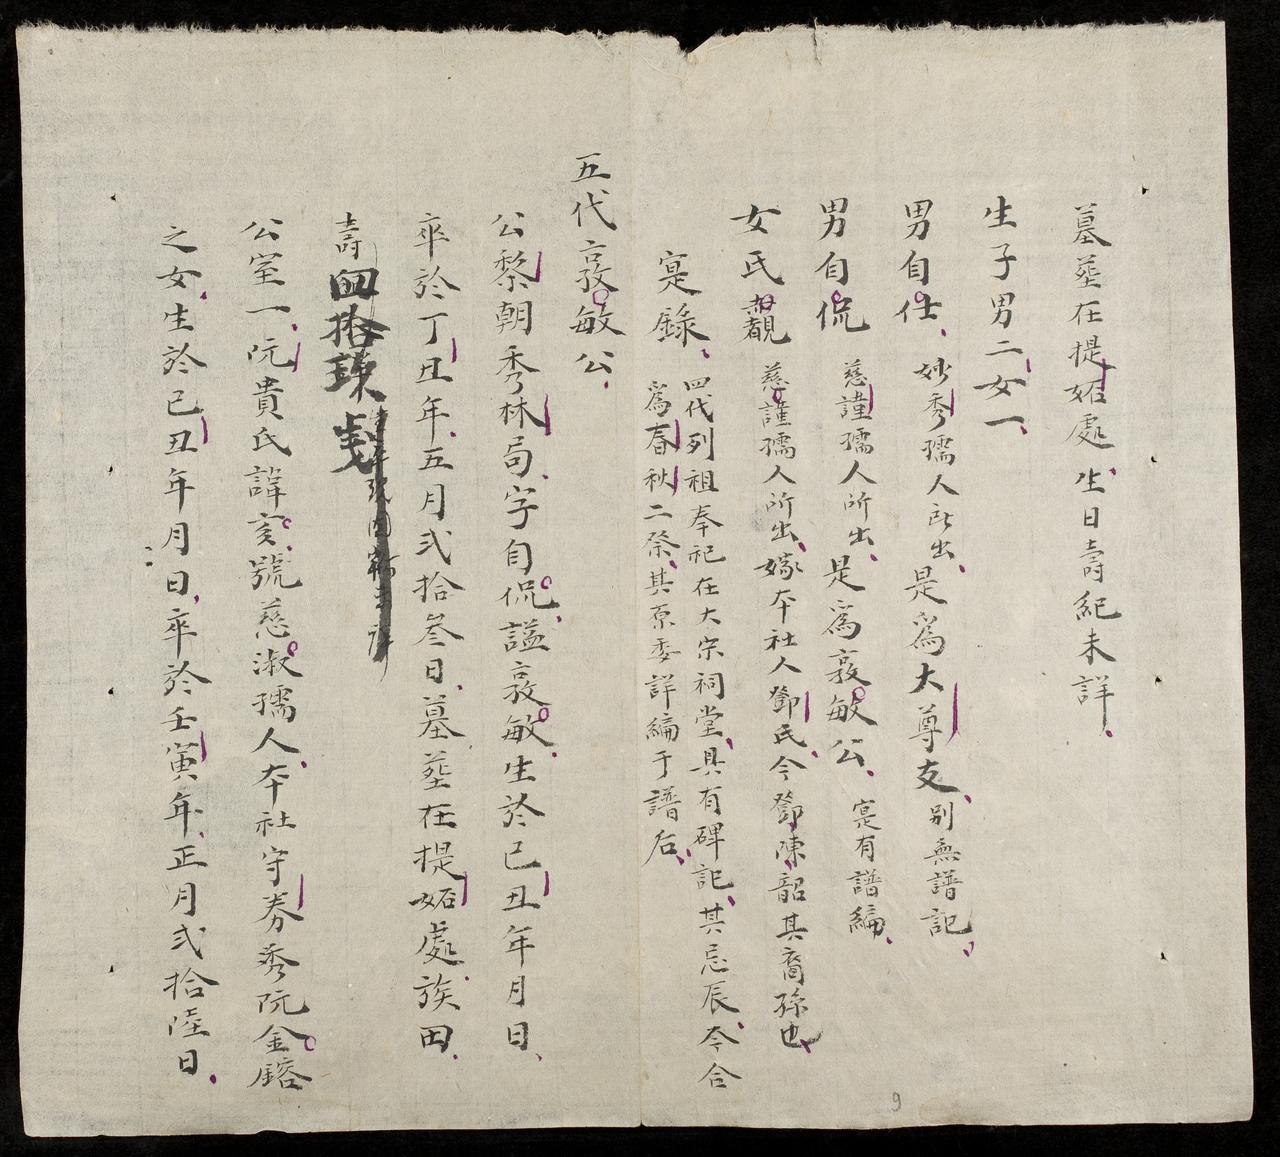 墓塟在提妬處生日壽紀未詳
生子男二女一
男自仕 妙秀孺人所出是爲大尊支 別無譜記
男自侃 慈謹孺人所出是爲敦敏公 寔有譜編
女氏 慈謹孺人所出嫁本社人鄧氏今鄧陳韶其裔孫也
寔錄 四代列祖奉祀在大宗祠堂具有碑記其忌辰今合
爲春秋二祭其原委詳編于譜后
五代敦敏公
公黎朝秀林局字自侃謚敦敏生於己丑年月日
卒於丁丑年五月弍拾叁日墓塟在提妬處族田
壽四拾玖歲
公室一阮貴氏諱亥號慈淑孺人本社守券秀阮金鎔
之女生於己丑年月日卒於壬寅年正月弍拾陸日
9